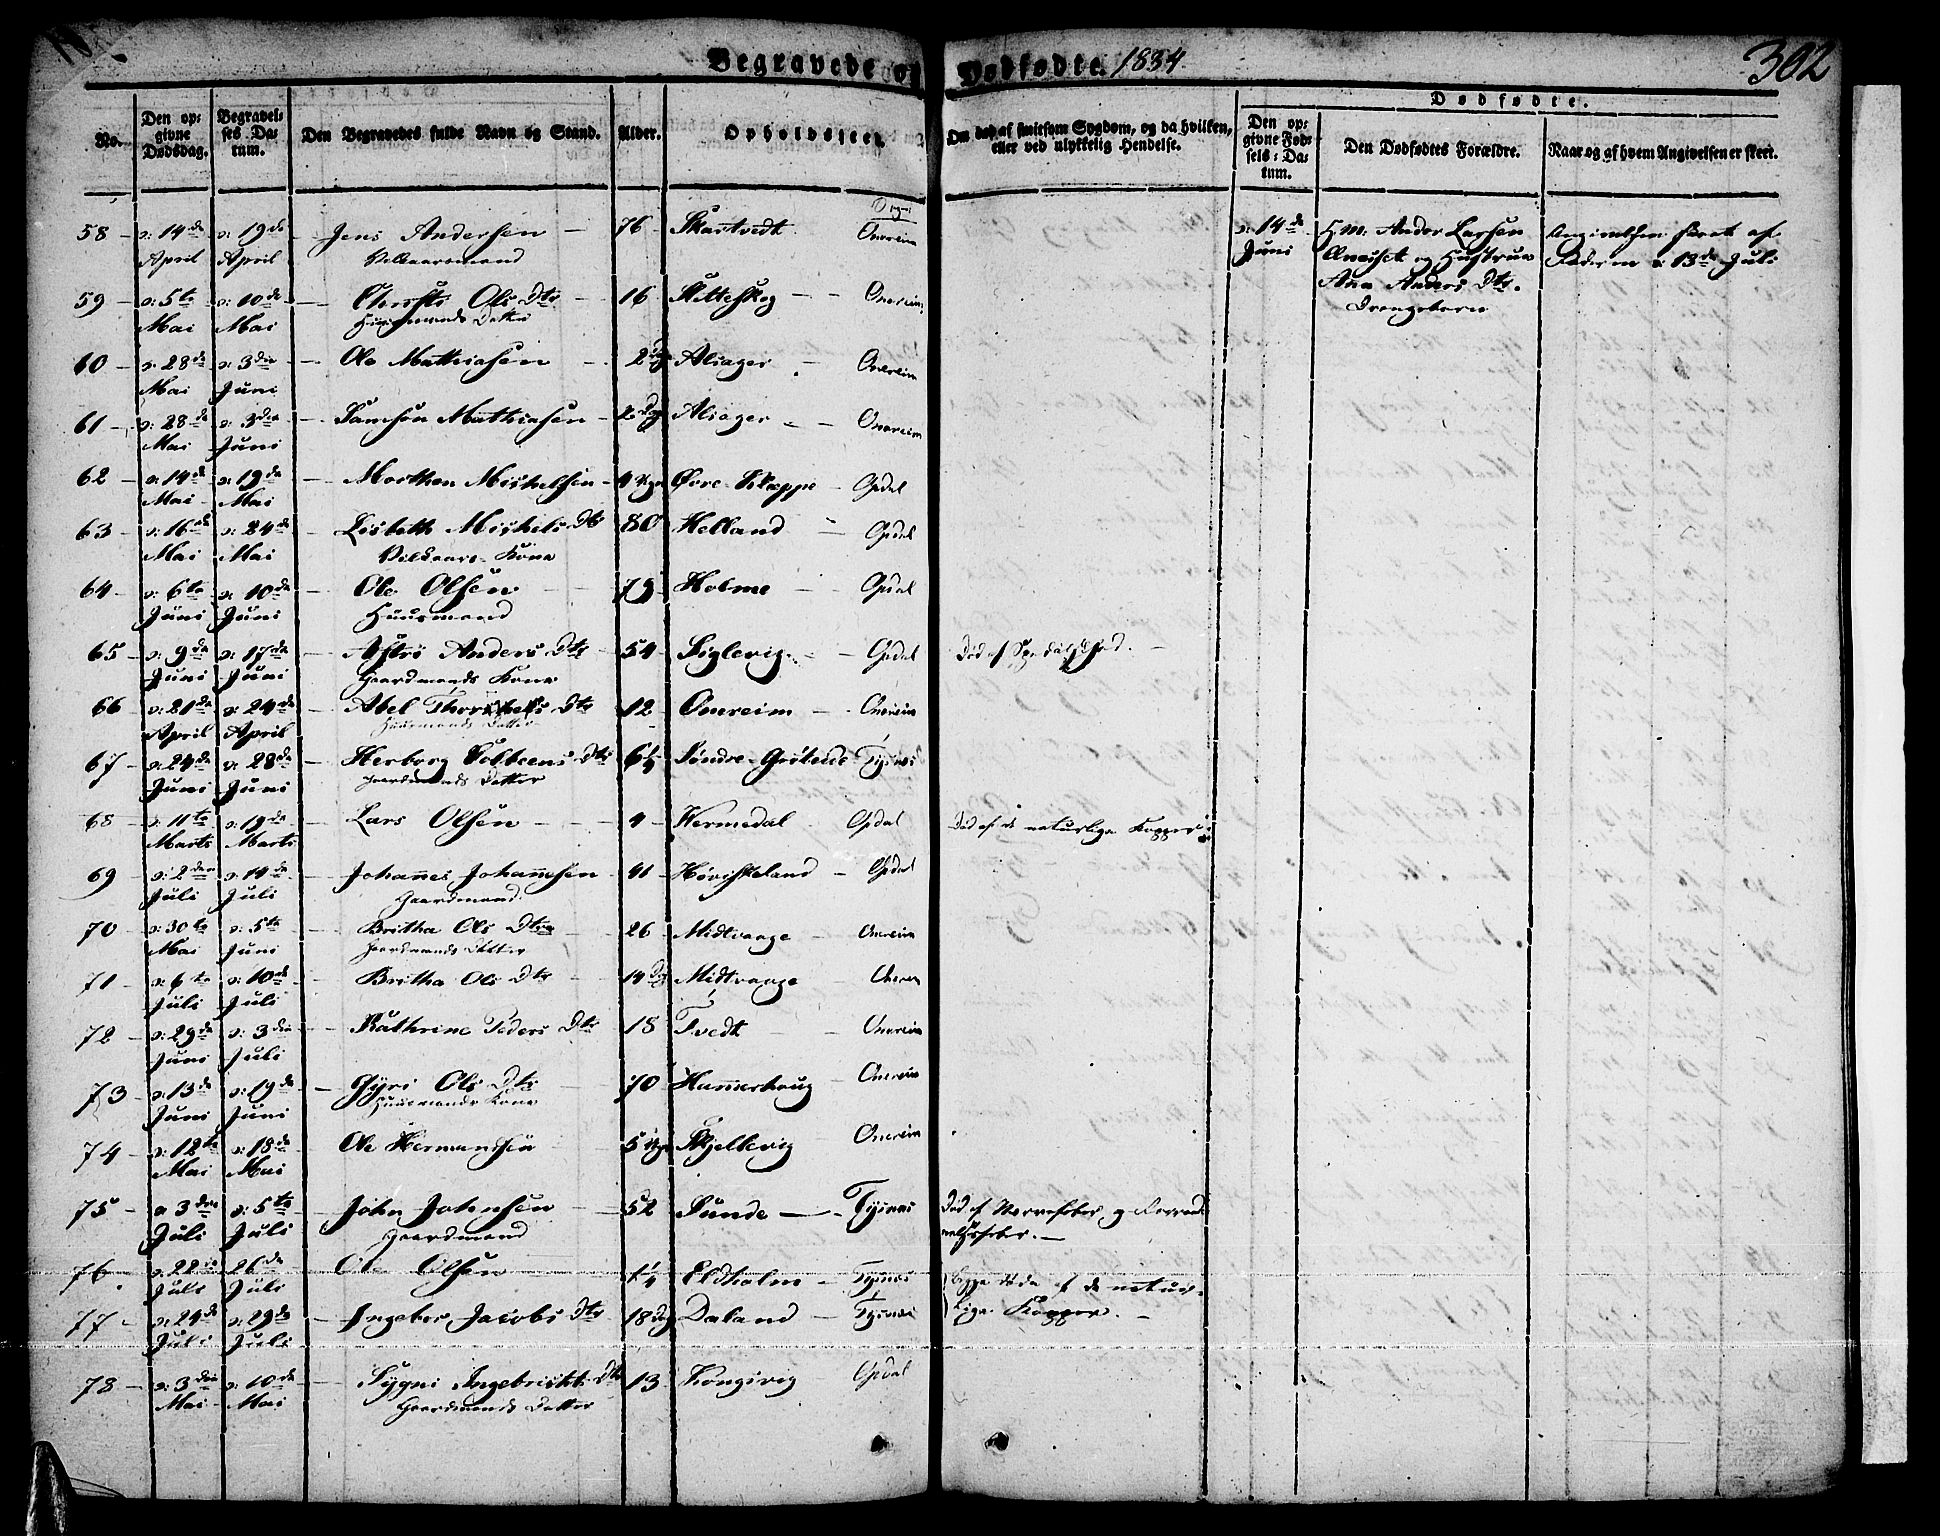 Begravede og Dødfødte. 1834.
302
No.
Den opgivne Dødsdag.
Begravelses Datum.
Den Begravedes fulde Navn og Stand.
Alder.
Opholdssted.
Om død af smitsom Sygdom, og da hvilken, eller ved ulykkelig Hendelse.
Dødfødte.
Den opgivne Fødsels-Datum.
Den Dødfødtes Forældre.
Naar og af hvem Angivelsen er skeet.
Sogn
58 – d: 14de d: 19de – Jens Andersen – 76 – Skartvedt Onereim
April April Vilkaarsmand
d: 14de Hm. Anders Larsen Angivelsen skeet af
Juni og Hustrue Faderen d: 13de Juli
Ana Anders Dtr.
Drengebarn
59 – d: 5te d: 10de – Ols Dtr – 16 – Skitteskog – – Onereim
Mai Mai Huusmands Datter
60 – d: 28de d: 3die – Ole Mathiasen – 2 Dg Aliager – Onereim
Mai Juni
61 – d: 28de d: 3die – Samson Mathiasen – 2 Dg Aliager – – Onereim
Mai Juni
62 – d: 14de d: 19de – Morthen Michelsen – 4 Ugr Øvre Skeppe – Opdal
Mai Mai
63 – d: 16de d: 24de – Lisbeth Michels Dtr 80 – Helland – Opdal
Mai Mai Vilkaars Kone
64 – d: 6te d: 10de – Ole Olsen – 73 – Holme – Opdal
Juni Juni Huusmand
65 – d: 9de d: 17de – Astri Anders Dtr – 54 – Siglevig – Opdal Død af Spedalskhed. –
Juni Juni Gaardmands Kone
66 – d: 21de d: 24de – Abel Dtr – 12 – Onereim – Onereim
April April Huusmands Datter
67 – d: 24de d: 28de – Herborg Dtr – 6½ Søndre Tysnes
Juni Juni Gaardmands Datter
68 – d: 11te d: 19de – Lars Olsen – – – 4 – Hermedal Opdal Død af de naturlige Kopper
Marts Marts
69 – d: 2den d: 14de – Johannes Johannesen – 41 – Høviskeland – Opdal
Juli Juli Gaardmand
70 – d: 30te d: 5te – Britha Ols Dtr – 26 – Midtvaage – Onereim
Mai Juni Gaardmands Datter
71 – d: 6te d: 10de – Britha Ols Dtr – 14 Dg Midtvaage – Onerem
Juli Juli
72 – d: 29de d: 3die – Kathrine Peders Dtr – 18 – Tvedt – Onereim
Juni Juli
73 – d: 13de d: 19de – Gyri Ols Dtr – 70 – Hammerhaug – Onereim
Juni Juni Huusmands Kone
74 – d: 12te d: 18de – Ole Hermansen – 5 Ugr Skjellevig Onereim
Mai Mai
75 – d 3die d: 5te – John Johnsen – 52 – Sunde – Tysnes Død af Nervefeber og
Juli Juli Gaardmand
76 – d: 22de 26de – Ole Olsen – 1¼ Eldholm – Tysnes Begge døde af de natur-
Juli Juli
77 – d: 24de d: 29de – Ingebor Jacobs Dtr 18 Dg Daland – Tysnes lige Kopper. –
Juli Juli
78 – d: 3die d: 10de – Sygni Ingebrickts Dtr 13 – Kongsvig Opdal
Mai – Mai Gaardmands Datter